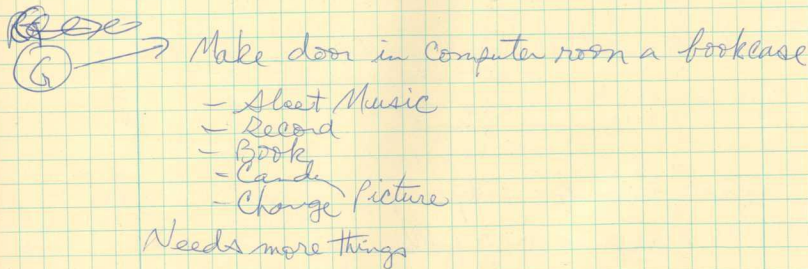 G → Make door in computer room a bookcase
- Sheet Music
- Record
- Book
- Candy
- Change Picture
Needs more things